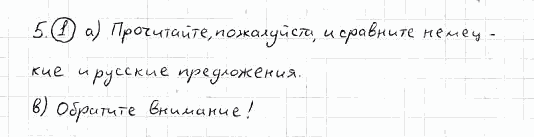 5. ① а) Прочитайте, пожалуйста, и сравните немец-
кие и русские предложения.
в) Обратите внимание!